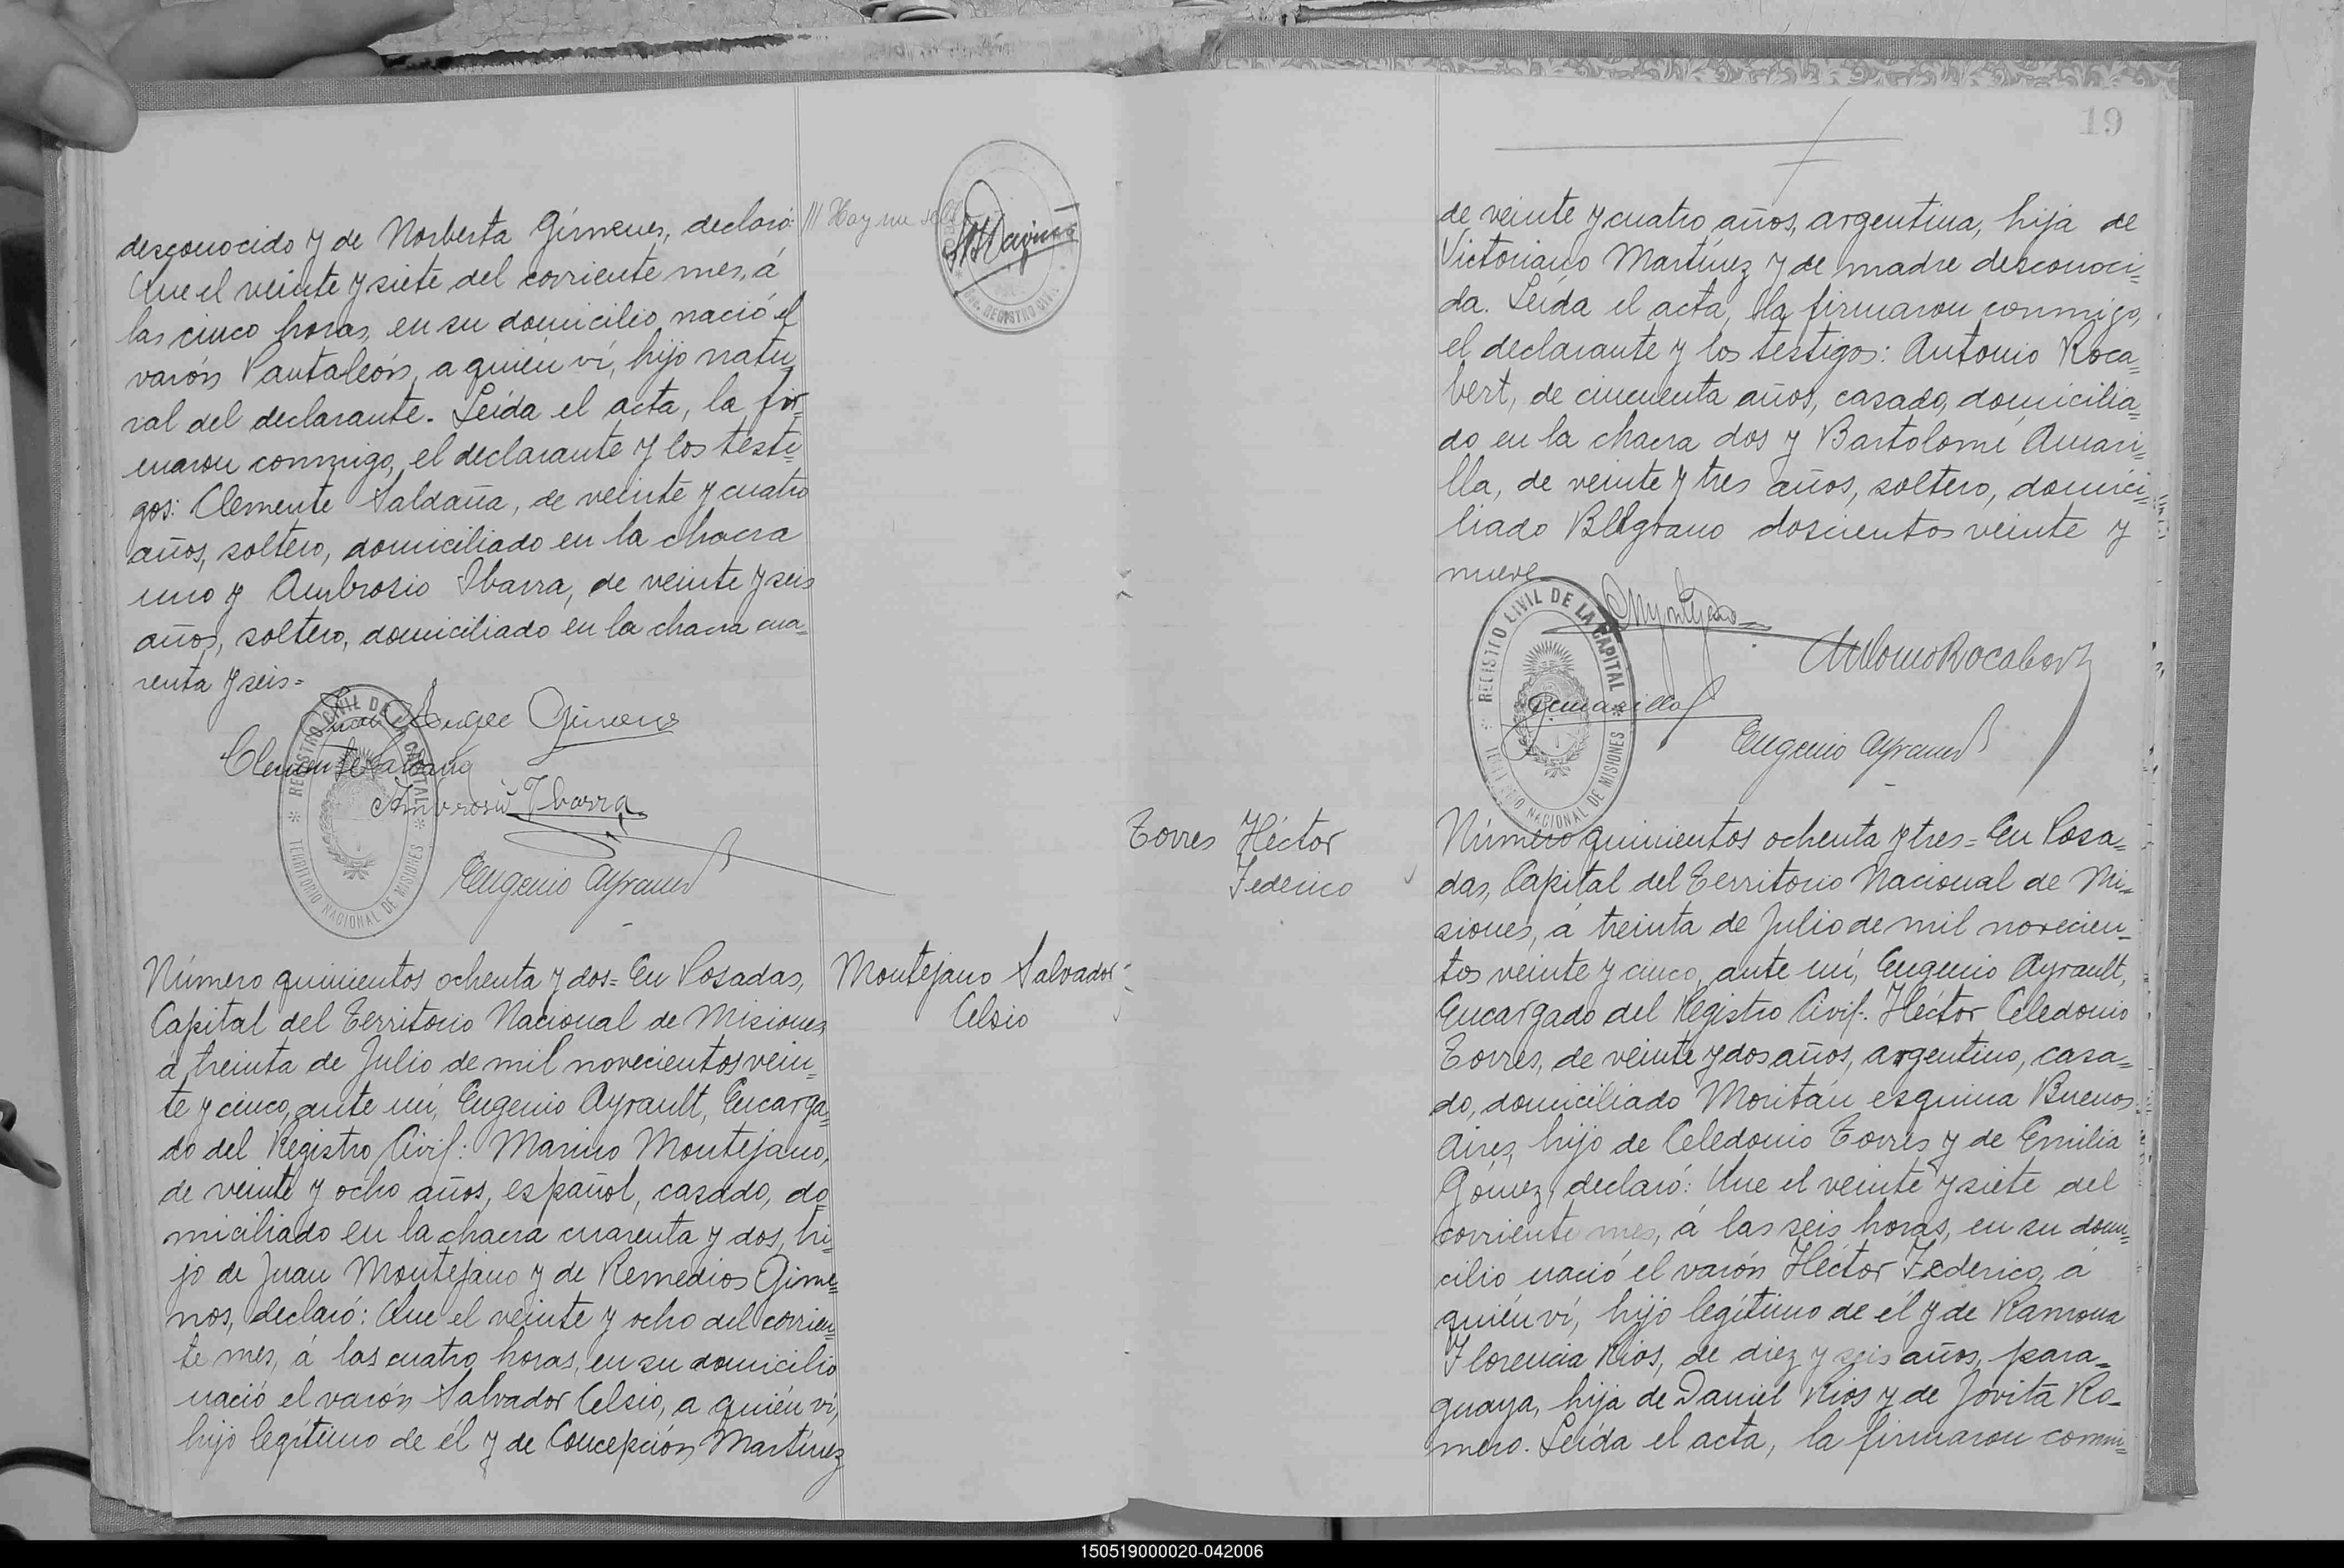 desconocido y de Norberta Gímenes, declaró:
Que el veinte y siete del corriente mes, á
las cinco horas, en su domicilio nació el
varón Pantaleón, a quién ví, hijo natu=
ral del declarante. Leída el acta, la fir=
maron conmigo, el declarante y los testi=
gos: Clemente Saldaña, de veinte y cuatro
años, soltero, domiciliado en la chacra
uno y Ambrosio Ibarra, de veinte y seis
años, soltero, domiciliado en la chacra cua=
renta y seis=
Hay un sello
REGISTRO CIVIL
Angel Gimenes
Clemente Saldaña
Ambrosio Ibarra
Eugenio Ayrault
REGISTRO CIVIL DE LA CAPITAL
TERRITORIO NACIONAL DE MISIONES
Montejano Salvador
Celsio
Número quinientos ochenta y dos= En Posadas,
Capital del Territorio Nacional de Misiones,
á treinta de Julio de mil novecientos vein=
te y cinco, ante mí, Eugenio Ayrault, Encarga=
do del Registro Civil: Marino Montejano,
de veinte y ocho años, español, casado, do=
miciliado en la chacra cuarenta y dos, hi=
jo de Juan Montejano y de Remedios Gime=
nos, declaró: Que el veinte y ocho del corrien=
te mes, á las cuatro horas, en su domicilio
nació el varón Salvador Celsio, a quién ví,
hijo legítimo de él y de Concepción Martínez
19
de veinte y cuatro años, argentina, hija de
Victoriano Martínez y de madre desconoci=
da. Leída el acta, la firmaron conmigo,
el declarante y los testigos: Antonio Roca=
bert, de cincuenta años, casado, domicilia=
do en la chacra dos y Bartolomé Amari=
lla, de veinte y tres años, soltero, domici=
liado Belgrano doscientos veinte y
nueve
Antonio Rocabert
Amarilla
Eugenio Ayrault
REGISTRO CIVIL DE LA CAPITAL
TERRITORIO NACIONAL DE MISIONES
Torres Héctor
Federico
Número quinientos ochenta y tres= En Posa=
das, Capital del Territorio Nacional de Mi=
siones, á treinta de Julio de mil novecien=
tos veinte y cinco, ante mí, Eugenio Ayrault,
Encargado del Registro Civil: Héctor Celedonio
Torres, de veinte y dos años, argentino, casa=
do, domiciliado Moritán esquina Buenos
Aires, hijo de Celedonio Torres y de Emilia
Gómez, declaró: Que el veinte y siete del
corriente mes, á las seis horas, en su domi=
cilio nació el varón Héctor Federico, á
quién ví, hijo legítimo de él y de Ramona
Florencia Rios, de diez y seis años, para=
guaya, hija de Daniel Rios y de Jovita Ro=
mero. Leída el acta, la firmaron conmi=
150519000020-042006